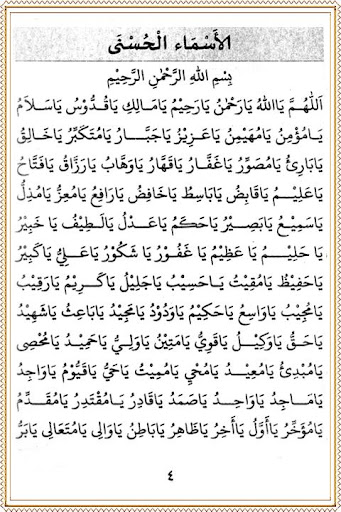 الأَسْمَاء الْحُسْنَى
بِسْمِ اللهِ الرَّحْمٰنِ الرَّحِيْمِ
اَللّٰهُمَّ يَااَللهُ يَارَحْمٰنُ يَارَحِيْمُ يَامَالِكُ يَاقُدُّوْسُ يَاسَلَامُ
يَامُؤْمِنُ يَامُهَيْمِنُ يَاعَزِيْزُ يَاجَبَّارُ يَامُتَكَبِّرُ يَاخَالِقُ
يَابَارِئُ يَامُصَوِّرُ يَاغَفَّارُ يَاقَهَّارُ يَاوَهَّابُ يَارَزَّاقُ يَافَتَّاحُ
يَاعَلِيْمُ يَاقَابِضُ يَابَاسِطُ يَاخَافِضُ يَارَافِعُ يَامُعِزُّ يَامُذِلُّ
يَاسَمِيْعُ يَابَصِيْرُ يَاحَكَمُ يَاعَدْلُ يَالَطِيْفُ يَا خَبِيْرُ
يَا حَلِيْمُ يَا عَظِيْمُ يَا غَفُوْرُ يَا شَكُوْرُ يَاعَلِيُّ يَاكَبِيْرُ
يَاحَفِيْظُ يَامُقِيْتُ يَاحَسِيْبُ يَاجَلِيْلُ يَاكَرِيْمُ يَارَقِيْبُ
يَامُجِيْبُ يَاوَاسِعُ يَاحَكِيْمُ يَاوَدُوْدُ يَامَجِيْدُ يَابَاعِثُ يَاشَهِيْدُ
يَاحَقُّ يَاوَكِيْلُ يَاقَوِيُّ يَامَتِيْنُ يَاوَلِيُّ يَاحَمِيْدُ يَامُحْصِى
يَامُبْدِئُ يَامُعِيْدُ يَامُحْيِ يَامُمِيْتُ يَاحَيُّ يَاقَيُّوْمُ يَاوَاجِدُ
يَامَاجِدُ يَاوَاحِدُ يَاصَمَدُ يَاقَادِرُ يَامُقْتَدِرُ يَامُقَدِّمُ
يَامُؤَخِّرُ يَاأَوَّلُ يَاأَخِرُ يَاظَاهِرُ يَابَاطِنُ يَاوَالِى يَامُتَعَالِى يَابَرُّ
٤